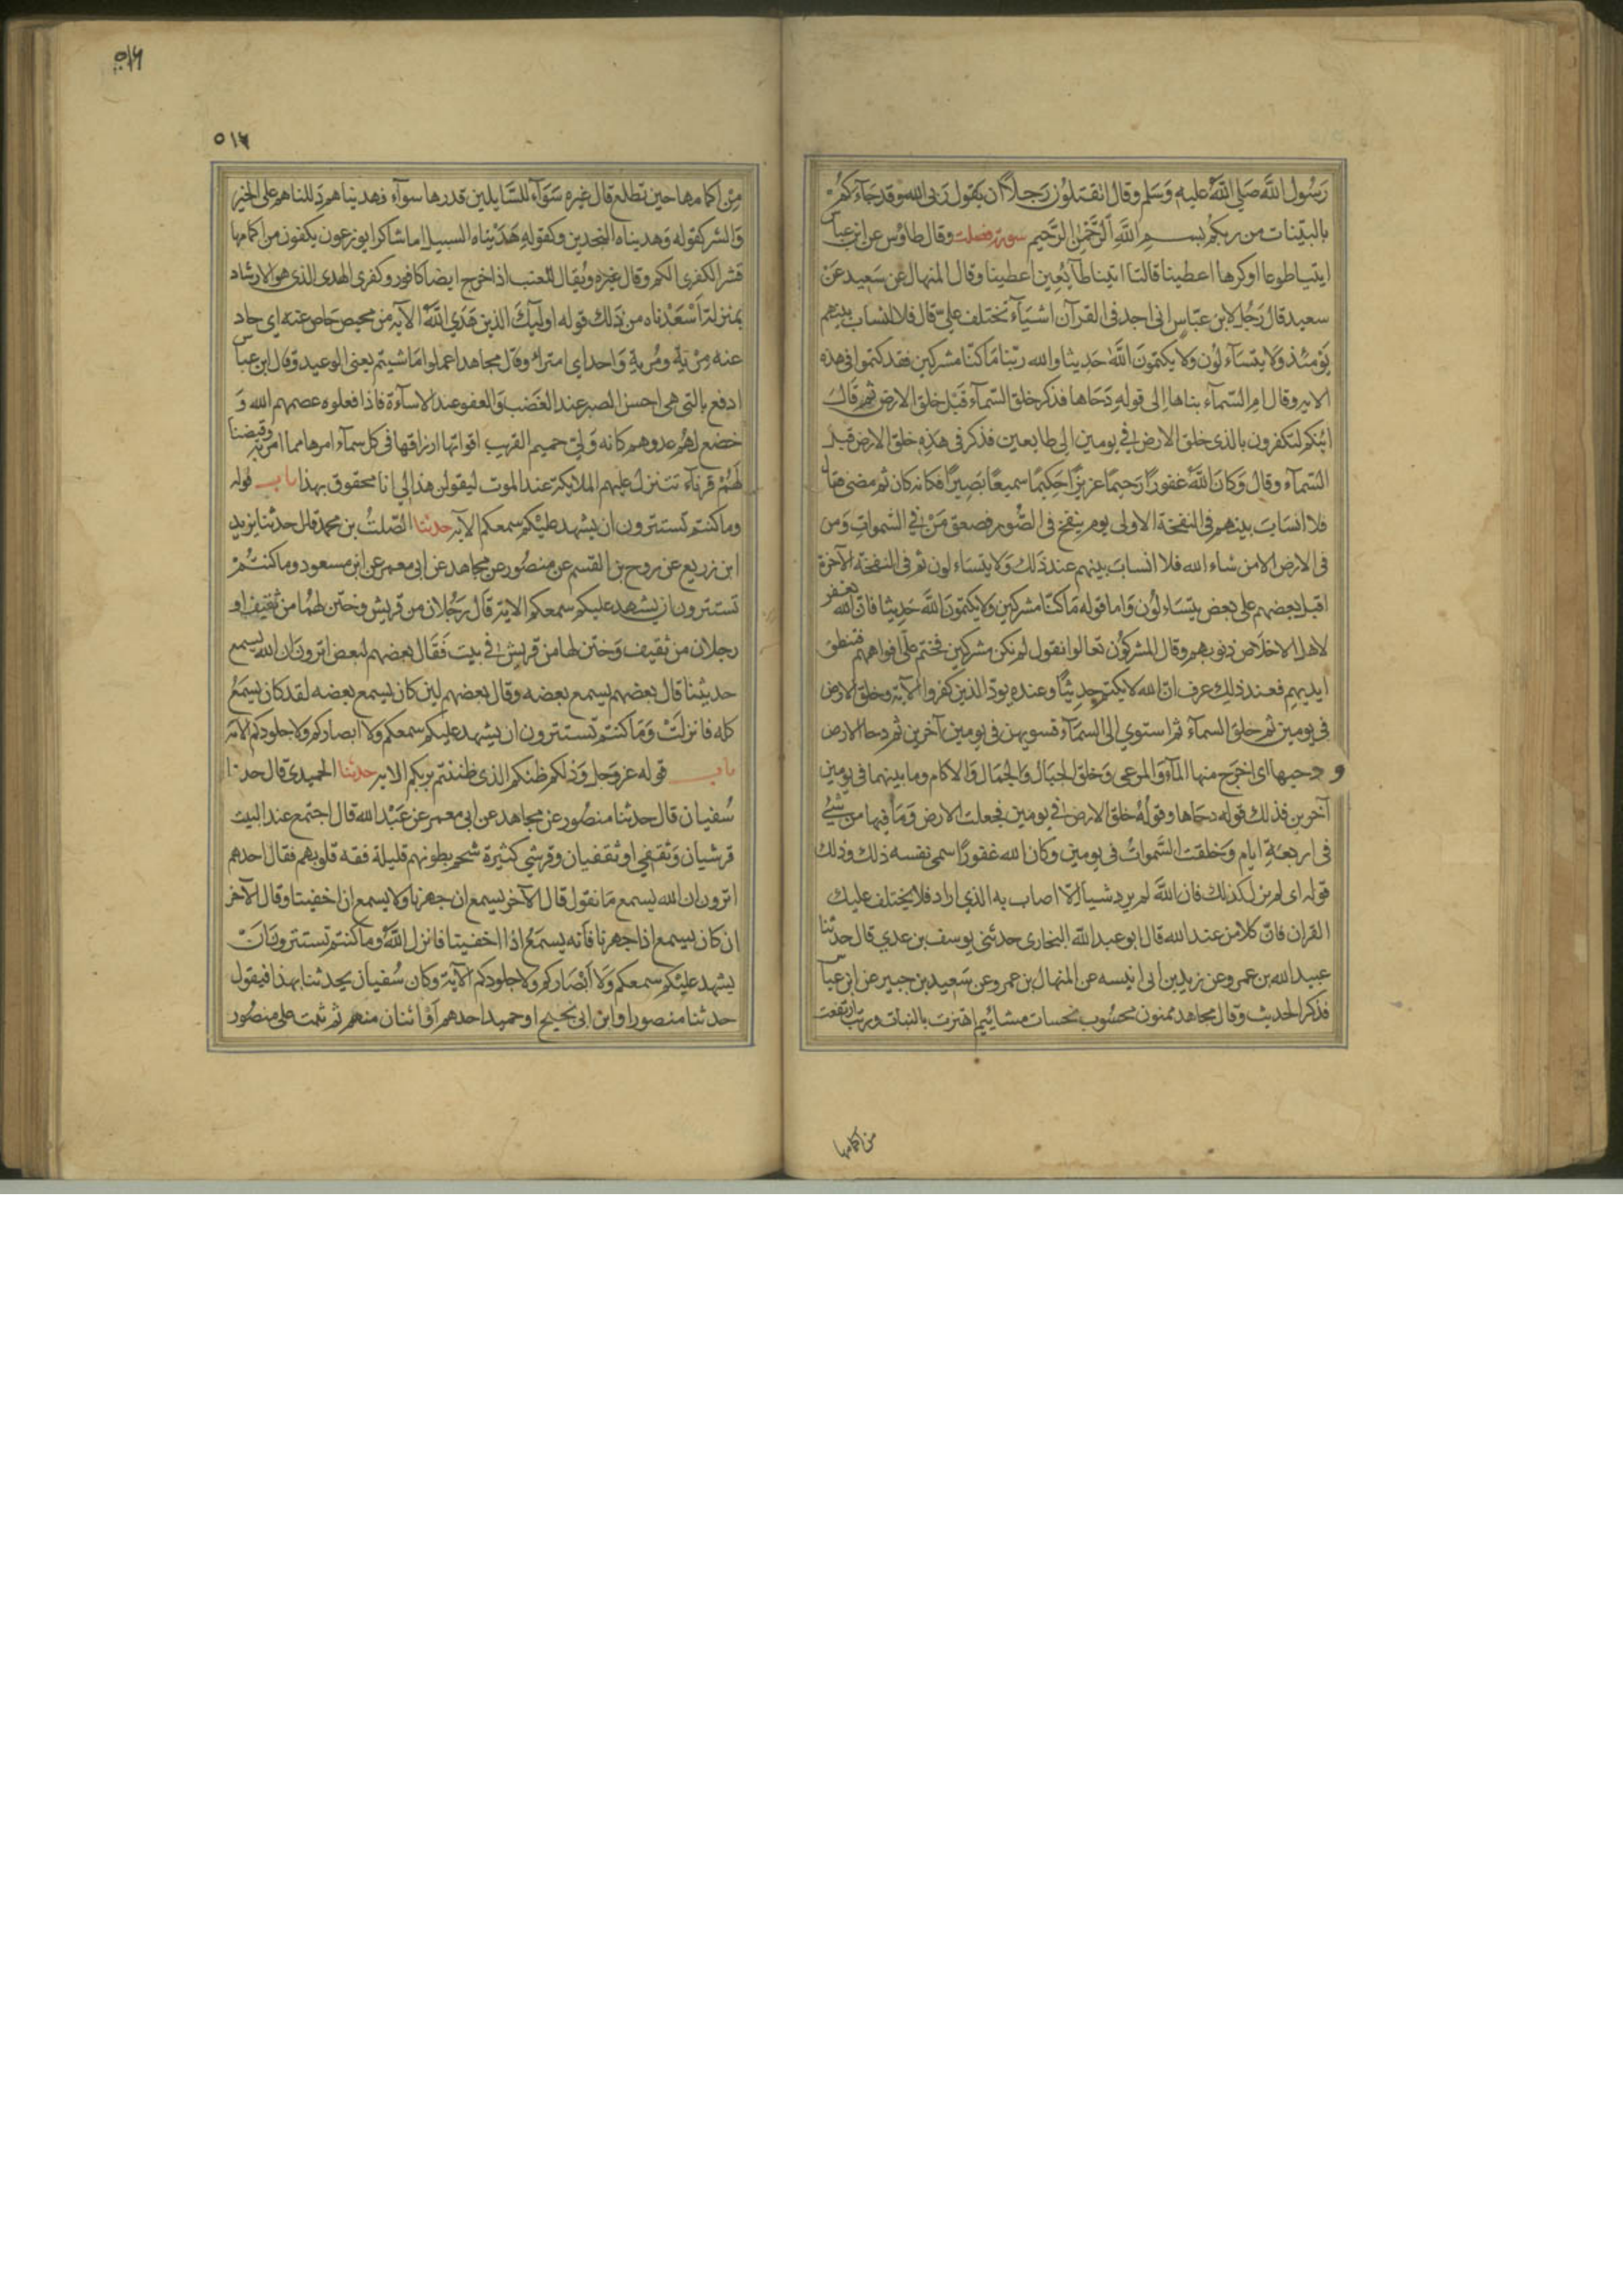 رَسُولُ اللَّه صَلي اللَّهُ عليهِ وَسَلم وقال اتقتلُون رَجلاً ان يقول رَبى الله وقد جَآءَكُمْ
بالبيّنات من ربكُم بسم اللَّهِ الرَّحْمٰنِ الرَّحيم سورة فصلت وقال طاؤس عن ابن عباس
ايتيا طوعا او كرها اعطينا قالتا اتينا طآيِعِين اعطينا وقال المنهال عن سَعيد عَنْ
سعيد قال رَجُل لابن عبّاسٍ انى اجد فى القرآن اشيَآءَ تختلف عليّ قال فلا انساب بينهم
يَوْمئذ وَلا يتسَآءلُون ولا يكتمونَ اللَّهَ حَديثا والله ربّنا مَا كنّا مشركين فقد كتموا فى هذه
الايه وقال امِ السّمآء بناها الى قوله دَحَاها فذكر خلق السّمآء قبَل خلق الارض ثم قالَ
ائنكم لتكفرون بالذى خلق الارض في يومين الى طايعين فذكر فى هَذِهِ خلق الارض قبل
السّمآء وقال وَكانَ اللَّهُ غفورًا رَحيمًا عزيزًا حَكِيمًا سميعًا بَصِيرًا فكانه كان ثم مضى فقال
فلا انسَابَ بينهم فى النفخة الاولى يوم ينفخ فى الصُّور فصعق مَنْ في السّموات وَمن
فى الارض الا من شاء الله فلا انسابَ بينهم عند ذلك وَلا يتسَاءلون ثم فى النفخة الآخرة
اقبل بعضهم على بعض يتسَاءلُون وَاما قوله مَا كنّا مشركين ولا يكتمُونَ اللَّهَ حَديثا فان الله يغفر
لاهل الاخلاص ذنوبهم وقال المشركوُن تعالوا نقول لم نكن مشركين فختم على افواههم فتنطق
ايديهم فعند ذلك عرف انّ الله لا يكتم حديثًا وعنده يودّ الذين كفروا الآية وخلق الارض
فى يومين ثم خلقَ السمآء ثم استوي الى السمَآء فسويهن فى يومين آخرين ثم دحا الارض
و دحيها اى اخرَج منها المآءَ وَالمرعى وَخلق الجبَال وَالجمَال وَالاكام وما بينهما فى يومين
آخرين فذلك قوله دحَاها وقولُهُ خلق الارض في يومين فجعلت الارض وَمَا فيها من شيْ
فى اربعَةِ ايام وَخلقت السَّمواتُ فى يومين وكان الله غفورًا سمى نفسه ذلك وذلك
قوله اى لم يزل كذلك فان اللَّهَ لم يرد شيأ الّا اصاب به الذي اراد فلا يختلف عليك
القران فانّ كلا من عند الله قال ابو عبد اللّه البخارى حدثنى يوسف بن عدي قال حدثنا
عبيد الله بن عمرو عن زيد بن ابى انيسه عن المنهال بن عمرو عن سَعيد بن جبير عن ابن عباس
فذكر الحديث وقال مجاهد ممنون محسُوب نحسات مشائيم اهتزت بالنبات وربت ارتفعت
من اكمامها
٥١٦
٥١٦
مِنْ اكمامها حين تطلع قال غيره سَوَآءً للسَّايلين قدرها سوآء فهديناهم دَللناهم على الخير
وَالشر كقوله وَهديناه النجدين وكقولهِ هَدَيناه السبيل اما شاكرا يوزعون يكفون من اكمامها
قشر الكفرى الكم وقال غيره وُيقال للعنب اذا خرج ايضا كافور وكفرى الهدى الذى هو الارشاد
بمنزلة اسْعَدْناه من ذلك قوله اوليَك الذين هَدَي اللَّهُ الآية من محيص حَاص عنه اي حاد
عنه مِرْيةٍ ومُريةٍ وَاحد اي امتراء وقال مجاهد اعملوا مَا شيتم يعنى الوعيد وَقال ابن عباس
ادفع بالتى هى احسن الصبر عند الغَضب وَالعفو عند الاسآءة فاذا فعلوه عصمهم الله وَ
خضع لهم عدوهم كانه وَليّ حميم القريب اقواتها ارزاقها فى كل سمآء امرها مما امر به وقيضنا
لَهُمْ قرنآءَ تتنزل عليهم الملايكة عند الموت ليقولن هذا لي انا محقوق بهذا باب قوله
وما كنتم تستترون ان يشهد عليْكم سمعكم الآية حدثنا الصّلتُ بن محمد قال حدثنا يزيد
ابن زريع عن روح بن القسم عن منصُور عن مجاهد عن ابى معمر عن ابن مسعود وما كنتُمْ
تستترون ان يشهد عليكم سمعكم الاية قال رَجُلان من قريش وختن لهُما من ثقيف او
رجلان من ثقيف وَختن لهما من قريش في بيت فَقَال بعضهم لبعض اترونَ ان الله يسمع
حديثنا قال بعضهم يسمع بعضه وقال بعضهم لين كان يسمع بعضه لقد كان يسمَعُ
كله فانزلَتْ وَمَا كنتم تستترون ان يشهد عليكم سمعكم ولا ابصاركم ولا جلودكم الآية
باب قوله عز وَجل وَذلكم ظنكم الذى ظننتم بربكم الايه حدثنا الحميدى قال حدثنا
سُفيان قال حدثنا منصُور عن مجاهد عن ابى معمر عن عَبْد الله قال اجتمع عند البيت
قرشيان وَثقفي او ثقفيان وقرشي كثيرة شحم بطونهم قليلة فقه قلوبهم فقال احدهم
اترون ان الله يسمع مَا نقول قال الآخر يسمع ان جهرنا ولا يسمع ان اخفيتا وقال الآخر
ان كان يسمع اذا جهرنا فانه يسمَعُ اذا اخفيتا فانزل اللَّهُ وما كنتم تستترون انْ
يشهد عليْكم سمعكم وَلا ابْصَاركم ولا جلودكم الآية وكان سُفيان يحدثنا بهذا فيقول
حدثنا منصور او ابن ابى نجيح او حميد احدهم اوْ اثنان منهم ثم ثبت على منصُور